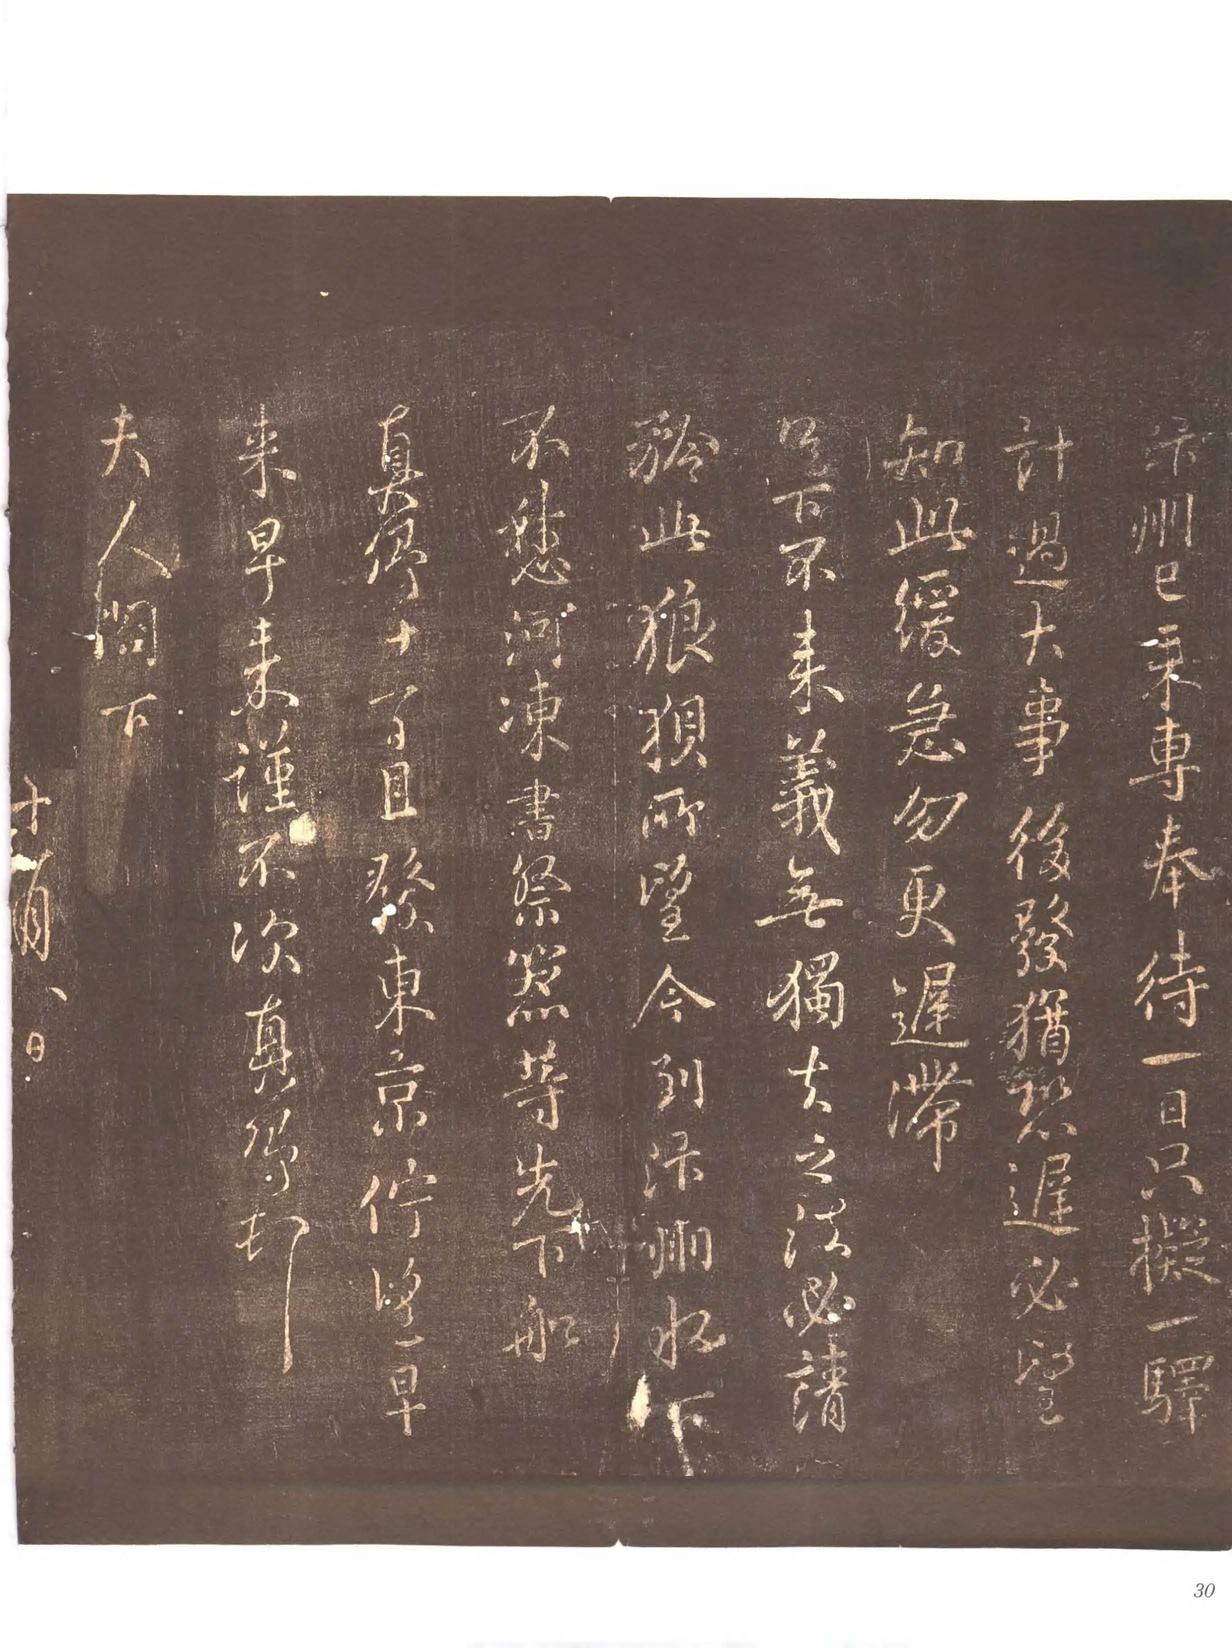 汴州已來專奉待一日只擬一驛
計過大事後發猶恐遲必望
知此緩急勿更遲滯
足下不來義無獨去之法必請
於此狼狽所望今到汴州水下
不愁河凍書祭器等先下船
真卿十一日且發東京佇望早
來早來謹不次真卿
夫人閤下
十一月八日
30